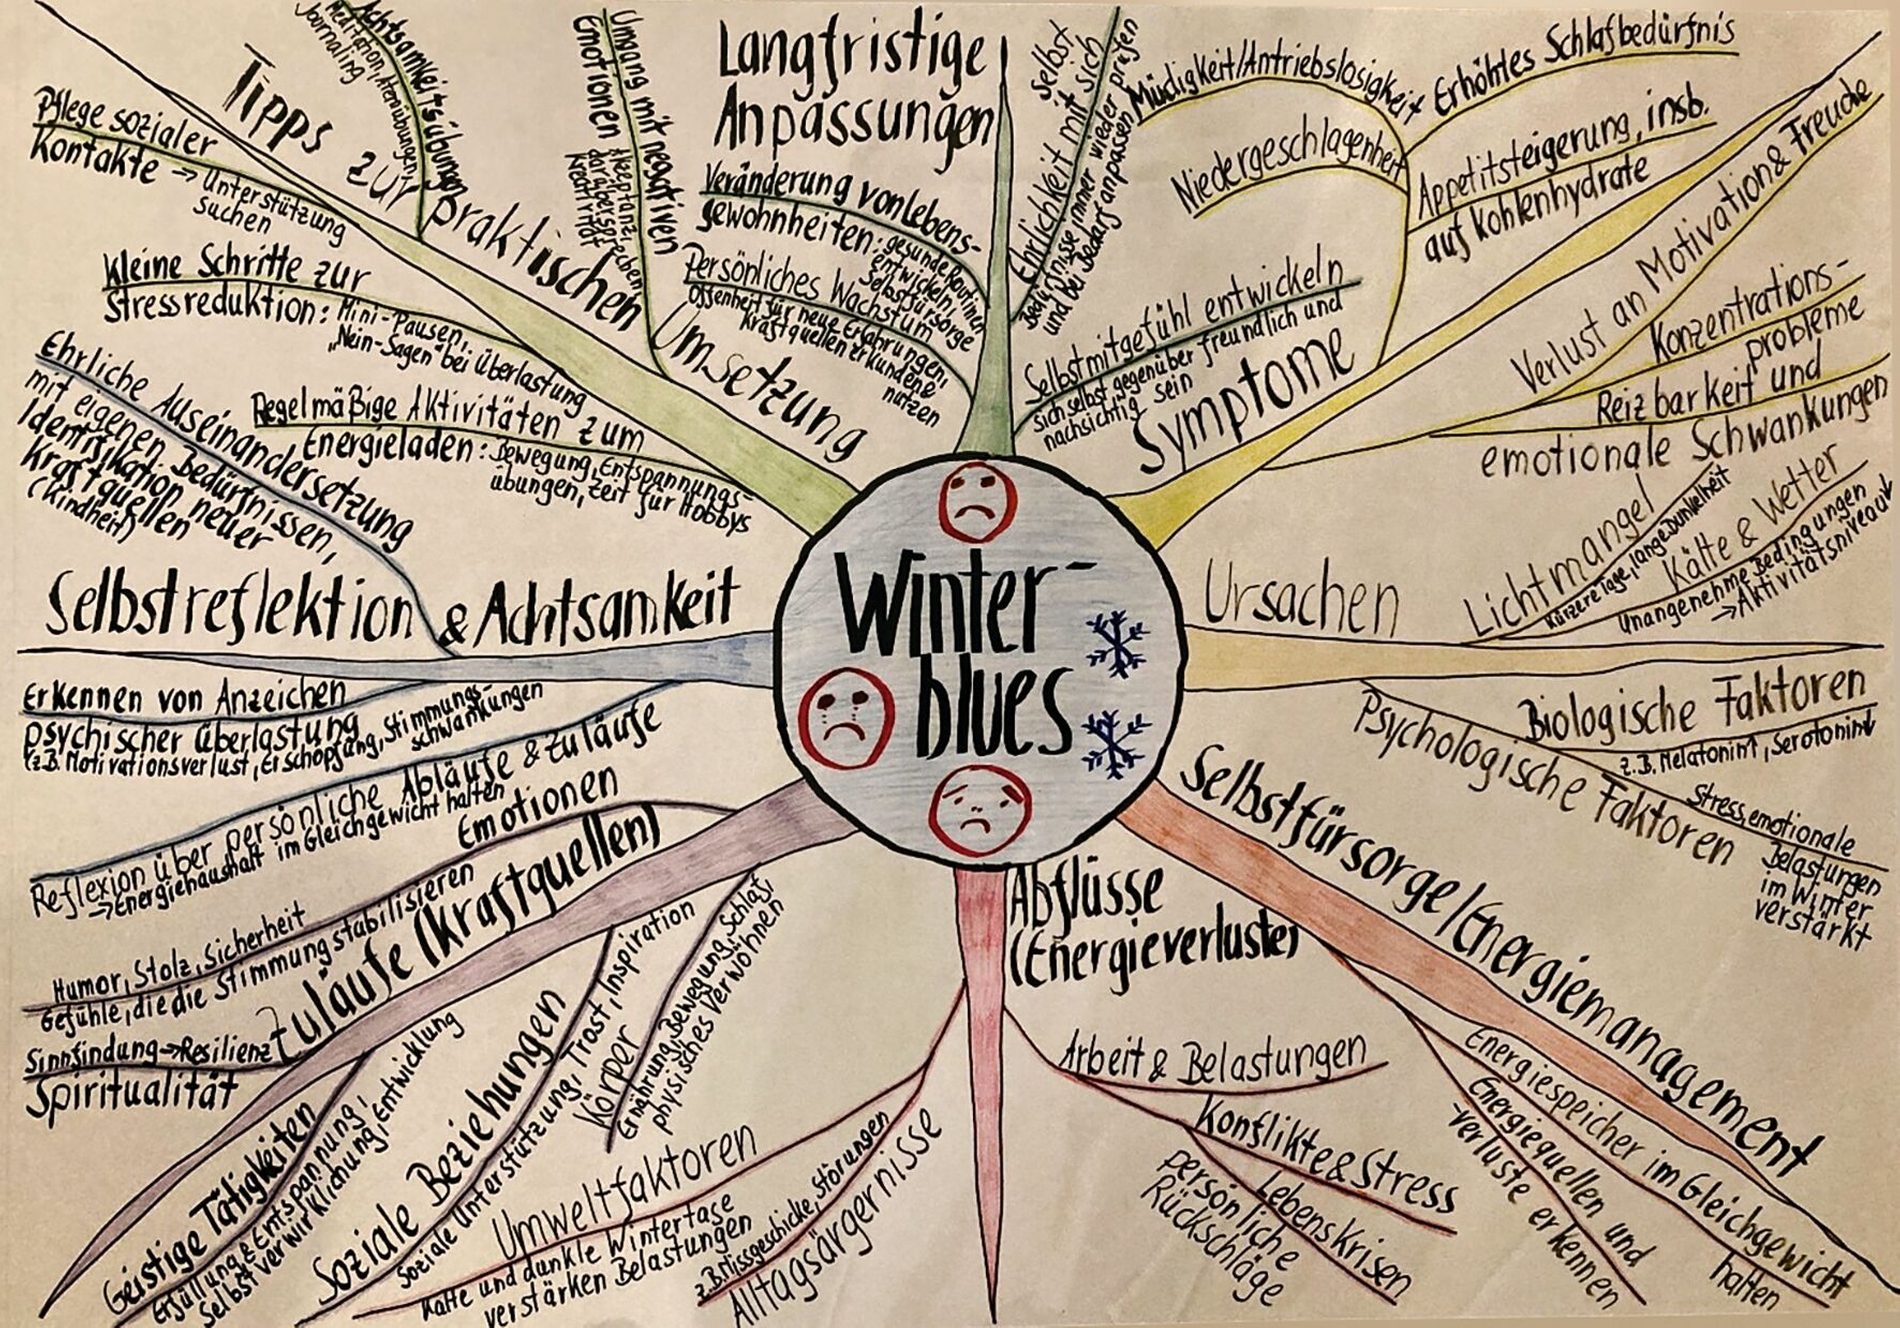 Winter-
blues
Langfristige
Anpassungen
Veränderung von Lebens-
gewohnheiten: gesunde Routinen
entwickeln,
Selbstfürsorge
Persönliches Wachstum
Offenheit für neue Erfahrungen,
Kraftquellen erkunden &
nutzen
Selbst
Ehrlichkeit mit sich
Bedürfnisse immer wieder prüfen
und bei Bedarf anpassen
Selbstmitgefühl entwickeln
sich selbst gegenüber freundlich und
nachsichtig sein
Symptome
Müdigkeit/Antriebslosigkeit
Niedergeschlagenheit
Erhöhtes Schlafbedürfnis
Appetitsteigerung, insb.
auf Kohlenhydrate
Verlust an Motivation & Freude
Konzentrations-
probleme
Reizbarkeit und
emotionale Schwankungen
Ursachen
Lichtmangel
kürzere Tage, lange Dunkelheit
Kälte & Wetter
Unangenehme Bedingungen
→ Aktivitätsniveau↓
Biologische Faktoren
z.B. Melatonin↑, Serotonin↓
Psychologische Faktoren
Stress, emotionale
Belastungen
im Winter
verstärkt
Selbstfürsorge/Energiemanagement
Energiespeicher im Gleichgewicht
halten
Energiequellen und
-verluste erkennen
Abflüsse
(Energieverluste)
Arbeit & Belastungen
Konflikte & Stress
Lebenskrisen
persönliche
Rückschläge
Umweltfaktoren
Kalte und dunkle Wintertage
verstärken Belastungen
z.B. Missgeschicke, Störungen
Alltagsärgernisse
Zuläufe (Kraftquellen)
Körper
Ernährung, Bewegung, Schlaf,
physisches Verwöhnen
Soziale Beziehungen
Soziale Unterstützung, Trost, Inspiration
Geistige Tätigkeiten
Erfüllung & Entspannung,
Selbstverwirklichung, Entwicklung
Sinnfindung → Resilienz
Spiritualität
Emotionen
Humor, Stolz, Sicherheit
Gefühle, die die Stimmung stabilisieren
Selbstreflektion & Achtsamkeit
Ehrliche Auseinandersetzung
mit eigenen Bedürfnissen,
Identifikation neuer
Kraftquellen
(Kindheit)
Erkennen von Anzeichen
psychischer Überlastung
(z.B. Motivationsverlust, Erschöpfung, Stimmungs-
schwankungen
Reflexion über persönliche Abläufe & Zuläufe
→ Energiehaushalt im Gleichgewicht halten
Tipps zur praktischen Umsetzung
Pflege sozialer
Kontakte → Unterstützung
suchen
Kleine Schritte zur
Stressreduktion: Mini-Pausen,
„Nein-Sagen" bei Überlastung
Regelmäßige Aktivitäten zum
Energieladen: Bewegung, Entspannungs-
übungen, Zeit für Hobbys
Achtsamkeitsübungen
Meditation, Atemübungen,
Journaling
Umgang mit negativen
Emotionen
Akzeptanz,
darüber sprechen,
Kreativität